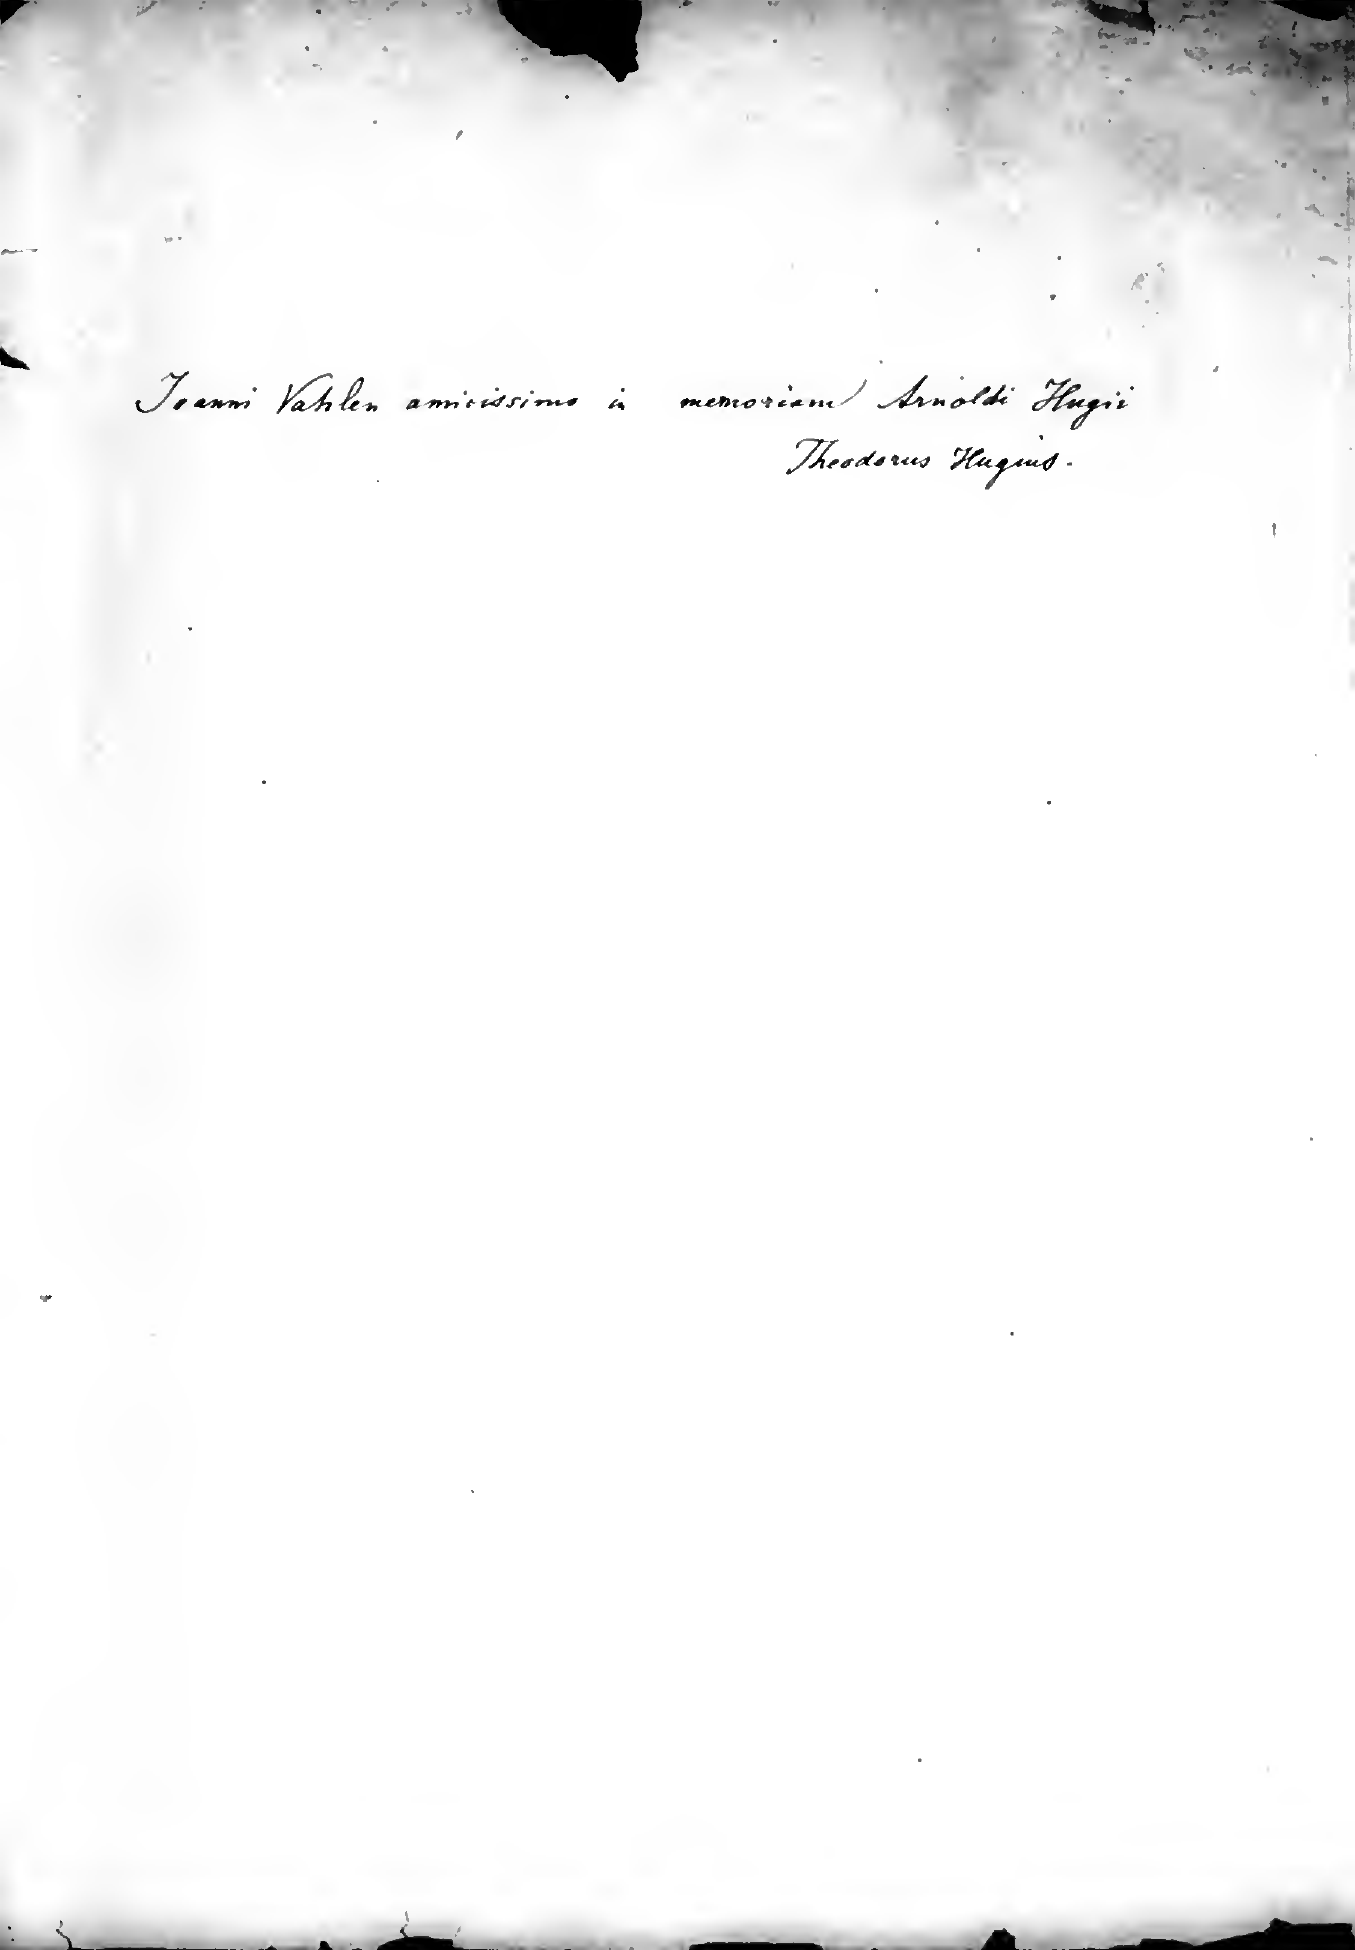 Ioanni Vahlen amicissimo in memoriam Arnoldi Hugii
Theodorus Hugius.